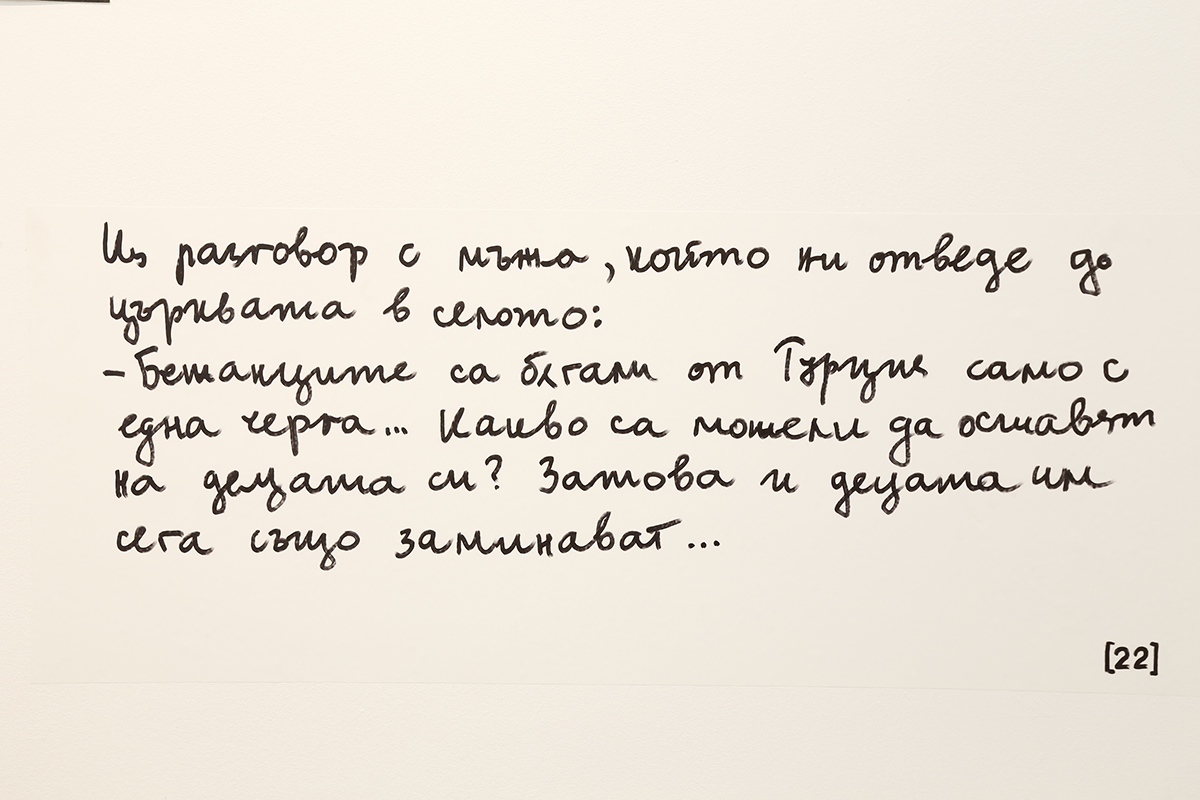 Из разговор с мъжа, който ни отведе до
църквата в селото:
– Бежанците са бягали от Турция само с
една черга... Какво са можели да оставят
на децата си? Затова и децата им
сега също заминават...
[22]